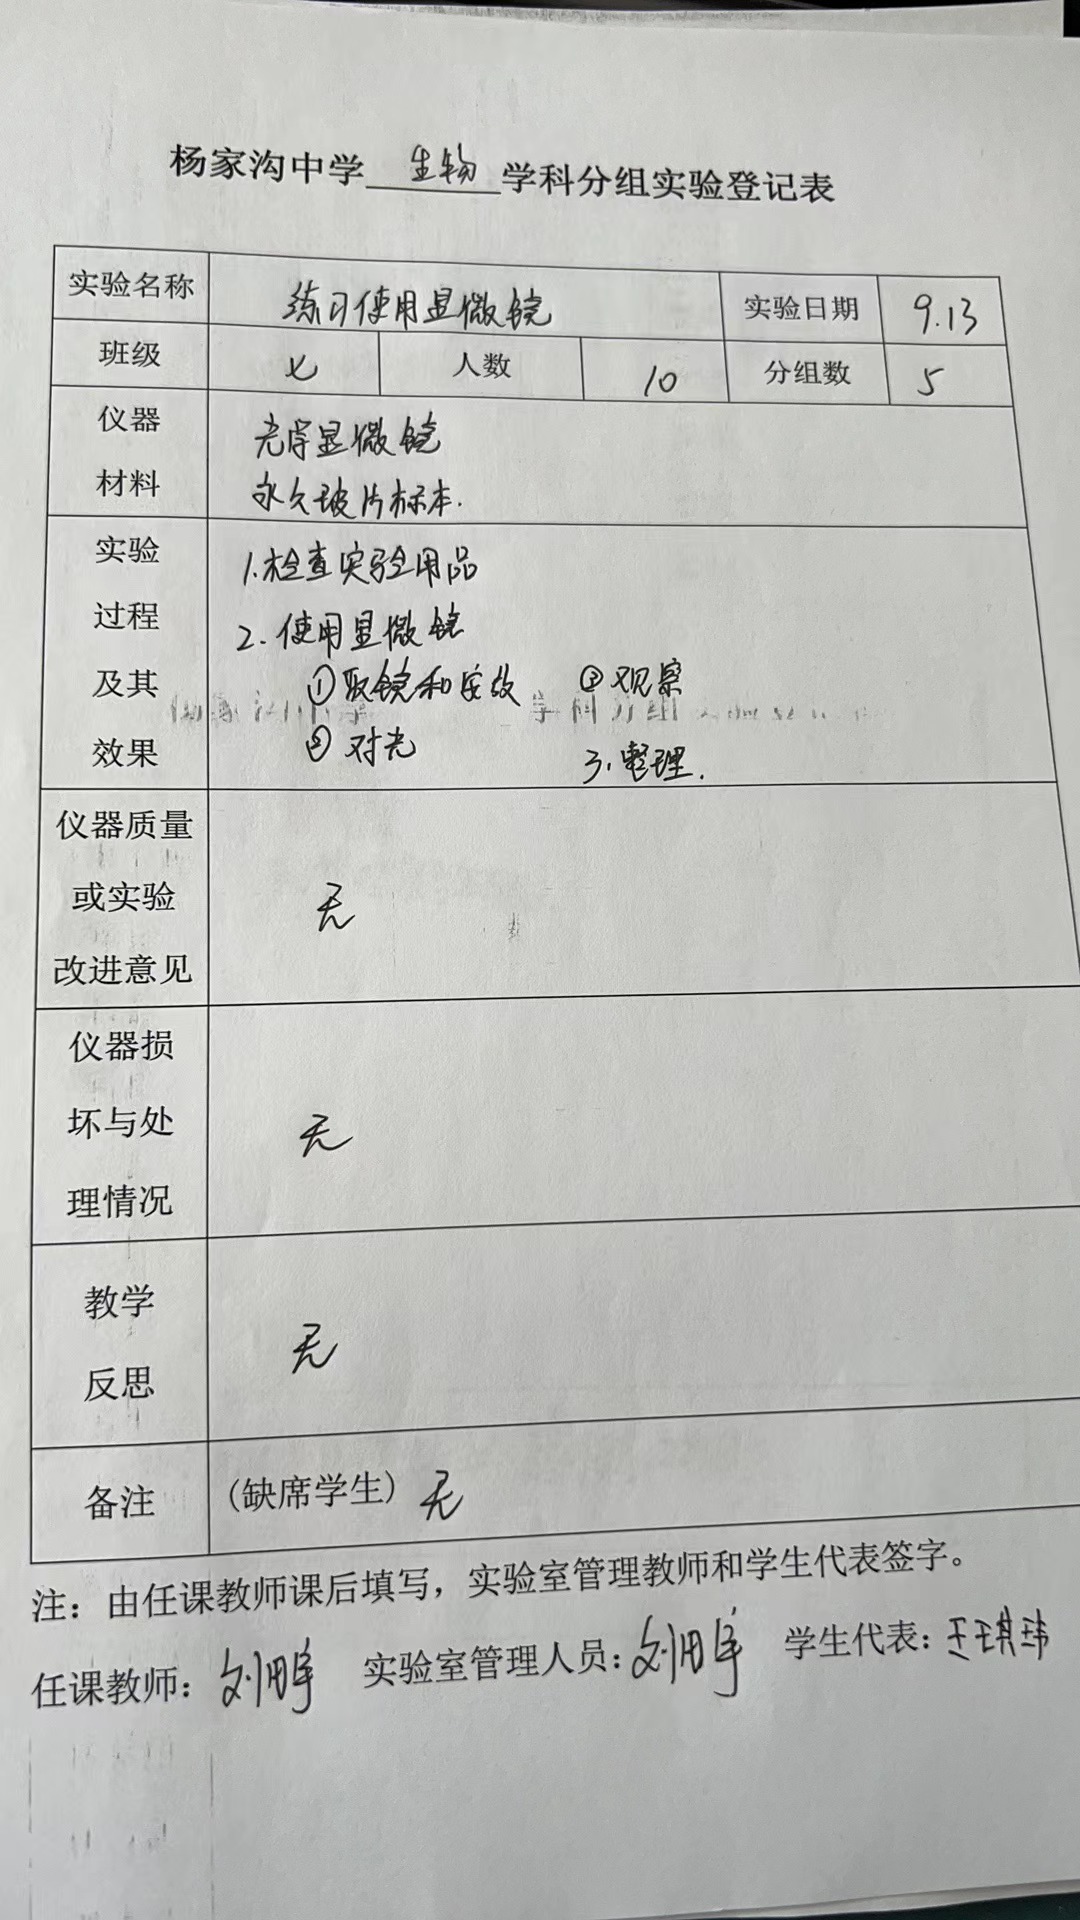 杨家沟中学 生物 学科分组实验登记表
实验名称 练习使用显微镜 实验日期 9.13
班级 七 人数 10 分组数 5
仪器 光学显微镜
材料 永久玻片标本.
实验 1.检查实验用品
过程 2.使用显微镜
及其 ①取镜和安放 ③观察
效果 ②对光 3.整理.
仪器质量
或实验 无
改进意见
仪器损
坏与处 无
理情况
教学
反思 无
备注 (缺席学生) 无
注：由任课教师课后填写，实验室管理教师和学生代表签字。
任课教师： 刘 实验室管理人员： 刘 学生代表：王琪玮